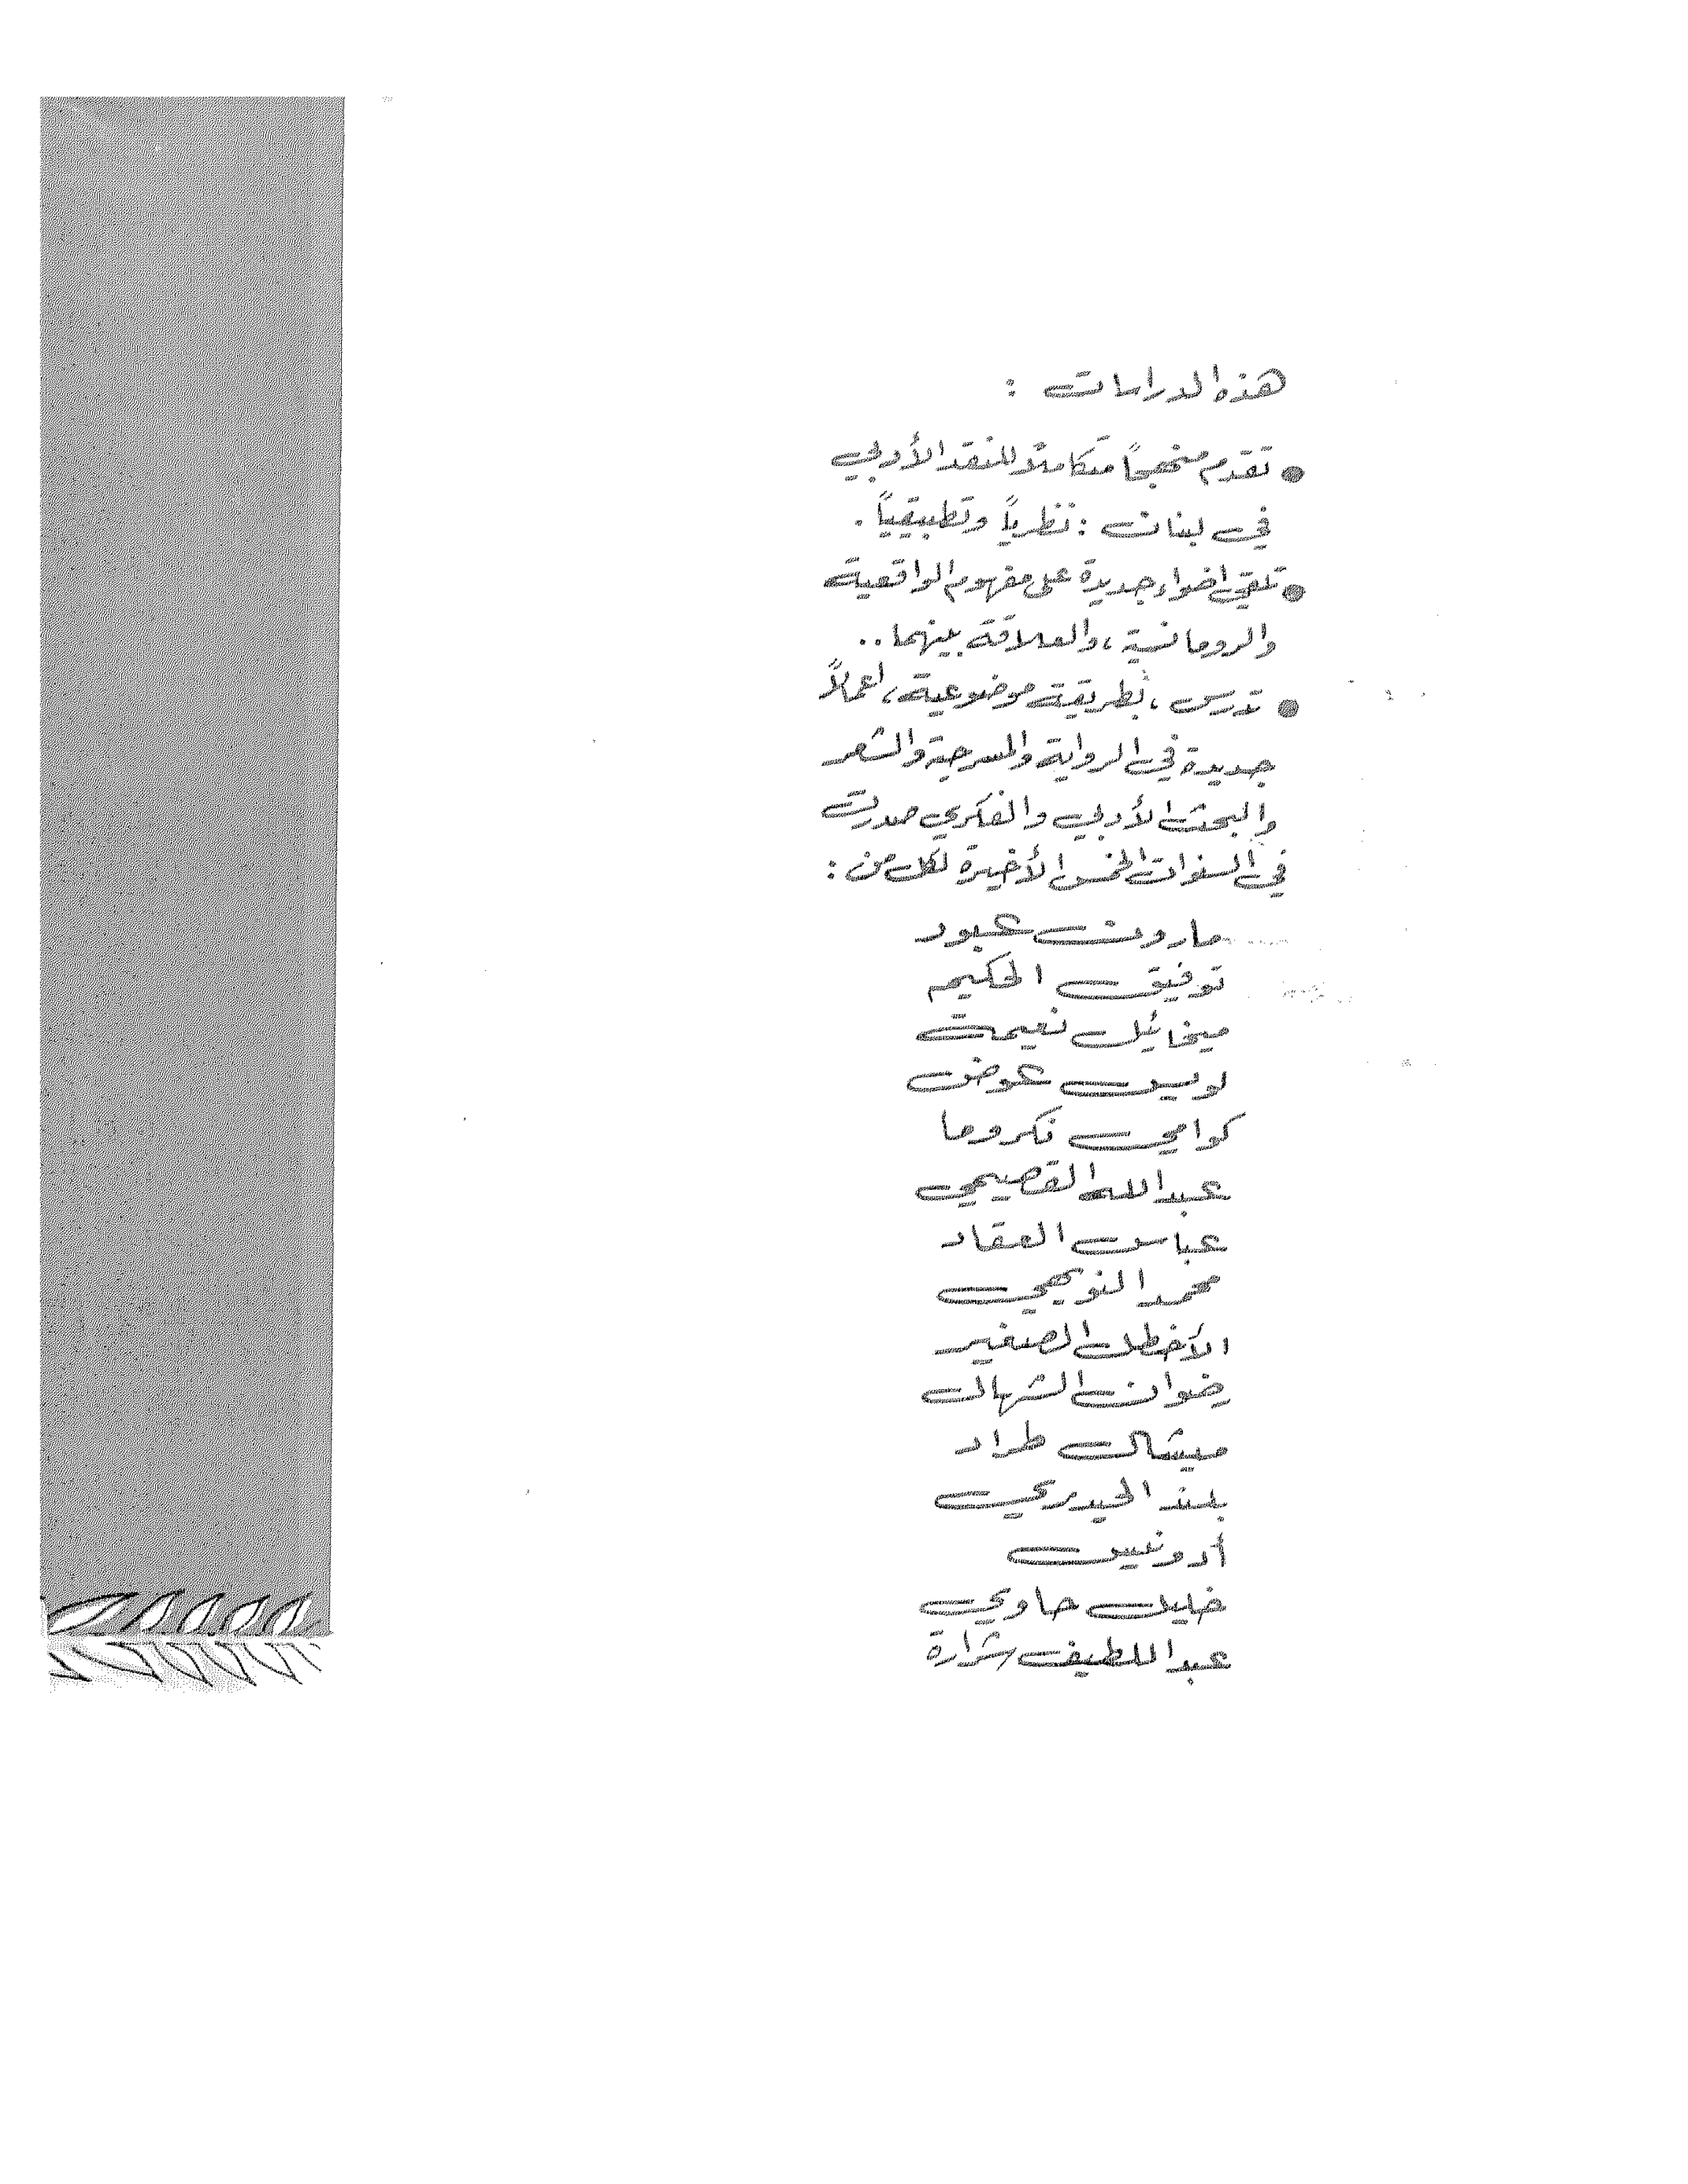 هذه الدراسات :
● تقدم منهجاً متكاملاً للنقد الأدبي
في لبنان : نظرياً وتطبيقياً .
● تلقي اضواء جديدة على مفهوم الواقعية
والرومانسية ، والعلاقة بينهما . .
● تدرس ، بطريقة موضوعية ، اعمالاً
جديدة في الرواية والمسرحية والشعر
والبحث الأدبي والفكري صدرت
في السنوات الخمس الأخيرة لكل من :
مارون عبود
توفيق الحكيم
ميخائيل نعيمة
لويس عوض
كوامي نكروما
عبدالله القصيمي
عباس العقاد
محمد النويهي
الأخطل الصغير
رضوان الشهال
ميشال طراد
بلند الحيدري
أدونيس
خليل حاوي
عبد اللطيف شرارة